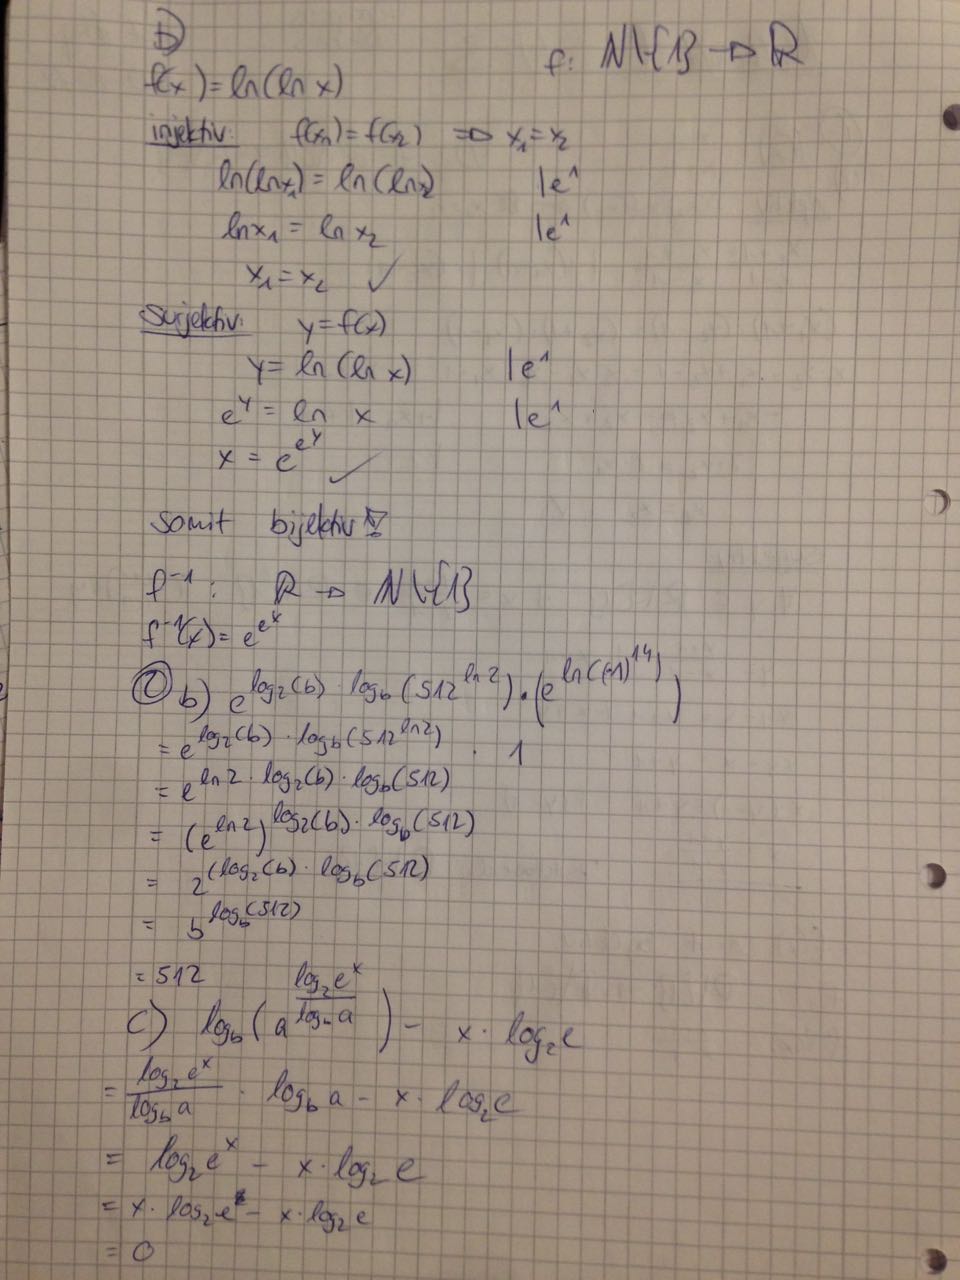 D)
f: ℕ\{1} → ℝ
f(x) = ln(ln x)
injektiv: f(x₁) = f(x₂) ⇒ x₁ = x₂
ln(ln x₁) = ln(ln x₂) |e^1
ln x₁ = ln x₂ |e^1
x₁ = x₂ ✓
Surjektiv: y = f(x)
y = ln(ln x) |e^1
e^y = ln x |e^1
x = e^(e^y) ✓
somit bijektiv
f⁻¹: ℝ → ℕ\{1}
f⁻¹(x) = e^(e^x)
② b) e^(log₂(b) · log_b(512^(ln 2))) · (e^(ln(-1)^14))
= e^(log₂(b) · log_b(512^(ln 2))) · 1
= e^(ln 2 · log₂(b) · log_b(512))
= (e^(ln 2))^(log₂(b) · log_b(512))
= 2^((log₂(b) · log_b(512))
= b^(log_b(512))
= 512
c) log_b(a^(log₂ e^x / log_b a)) - x · log₂ e
= log₂ e^x / log_b a · log_b a - x · log₂ e
= log₂ e^x - x · log₂ e
= x · log₂ e - x · log₂ e
= 0